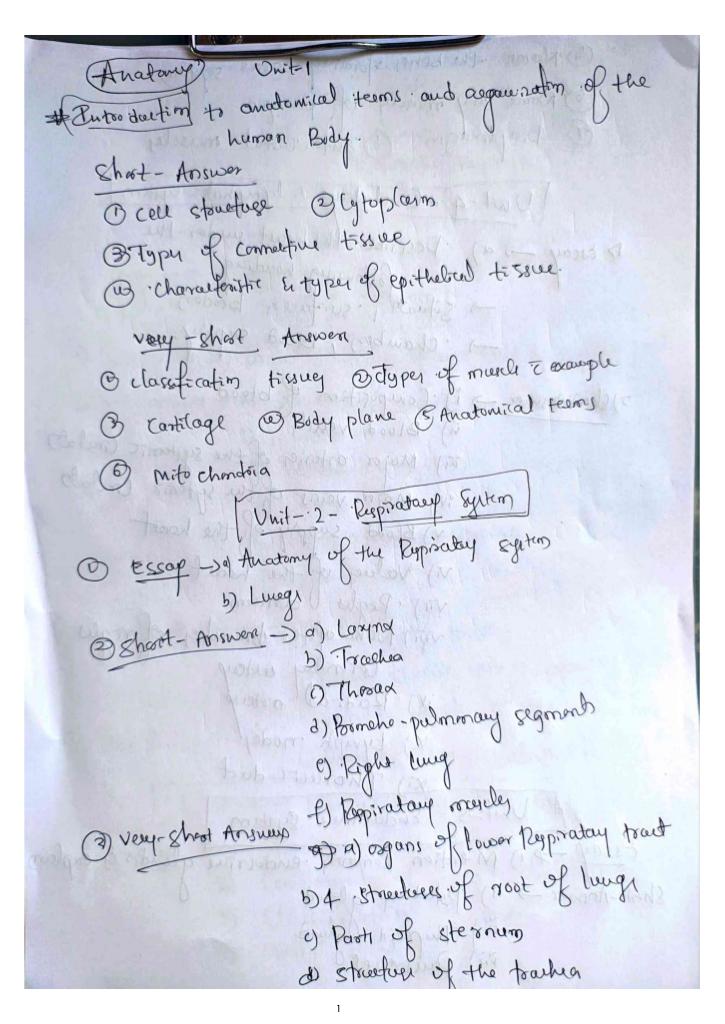 Anatomy Unit-1
* Introduction to anatomical terms and organization of the
human Body.
Short - Answer
① cell structure ② Cytoplasm
③ Types of connective tissue
④ characteristic & types of epithelial tissue.
very - short Answers
① classification tissues ② Types of muscle c̄ example
③ Cartilage ④ Body plane ⑤ Anatomical terms
⑥ Mitochondria
Unit - 2 - Respiratory System
① Essay → a) Anatomy of the Respiratory system
b) Lungs
② Short - Answers → a) Larynx
b) Trachea
c) Thorax
d) Broncho - pulmonary segments
e) Right lung
f) Respiratory muscles
③ Very - Short Answers a) organs of lower Respiratory tract
b) 4 structures of root of lungs
c) Parts of sternum
d) structure of the trachea
1